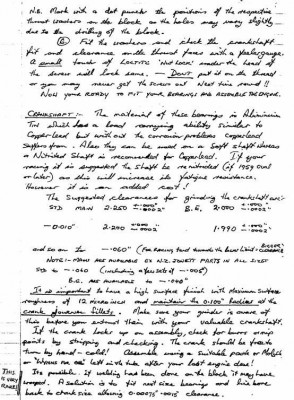 N.B. Mark with a dot punch the positions of the respective
thrust washers on the block as the holes may vary slightly
due to the drilling of the block.
⑥ Fit the washers and check the crankshaft
fit and clearance with the thrust faces with a feeler gauge.
A small touch of LOCTITE 'Nut Lock' under the head of
the screw will lock same. — DON'T put it on the thread
or you may never get the screw out next time round !!
NOW YOUR READY TO FIT YOUR BEARINGS AND ASSEMBLE THE ENGINE.
CRANKSHAFT:- The material of these bearings is Aluminium
Tin which has a load carrying ability similar to
Copper-lead but without the corrosion problems Copper-lead
suffers from. Also they can be used on a soft shaft whereas
a Nitrided shaft is recommended for Copper-lead. If your
racing it is suggested the shaft be renitrided (if 1959 oval
or later) as this will increase its fatigue resistance.
However it is an added cost!
The suggested clearance for grinding the crankshaft are:-
STD MAIN 2.250 B.E. 2.000
-0.010" 2.240 1.990
and so on to -.060" (For
NOTE:- MAIN ARE AVAILABLE
STD to -.060 (including a few sets of -.005")
B.E. ARE AVAILABLE to -.040"
It is important to have a high surface finish with maximum surface
roughness of 12 microns and maintain the 0.100" radius at the
crank journal fillets. Make sure your grinder is aware of
this before you entrust them with your valuable crankshaft.
If the crank locks up on assembly, check for burrs or high
points by stripping and checking. The crank should be free to
turn by hand - cold! Assemble using a suitable paste or Molyslip
on
Its possible if welding has been done on the block it may have
warped. A solution is to fit next size bearings and line bore
back to crank size allowing 0.00075"-.0015" clearance.
THIS
IS VERY